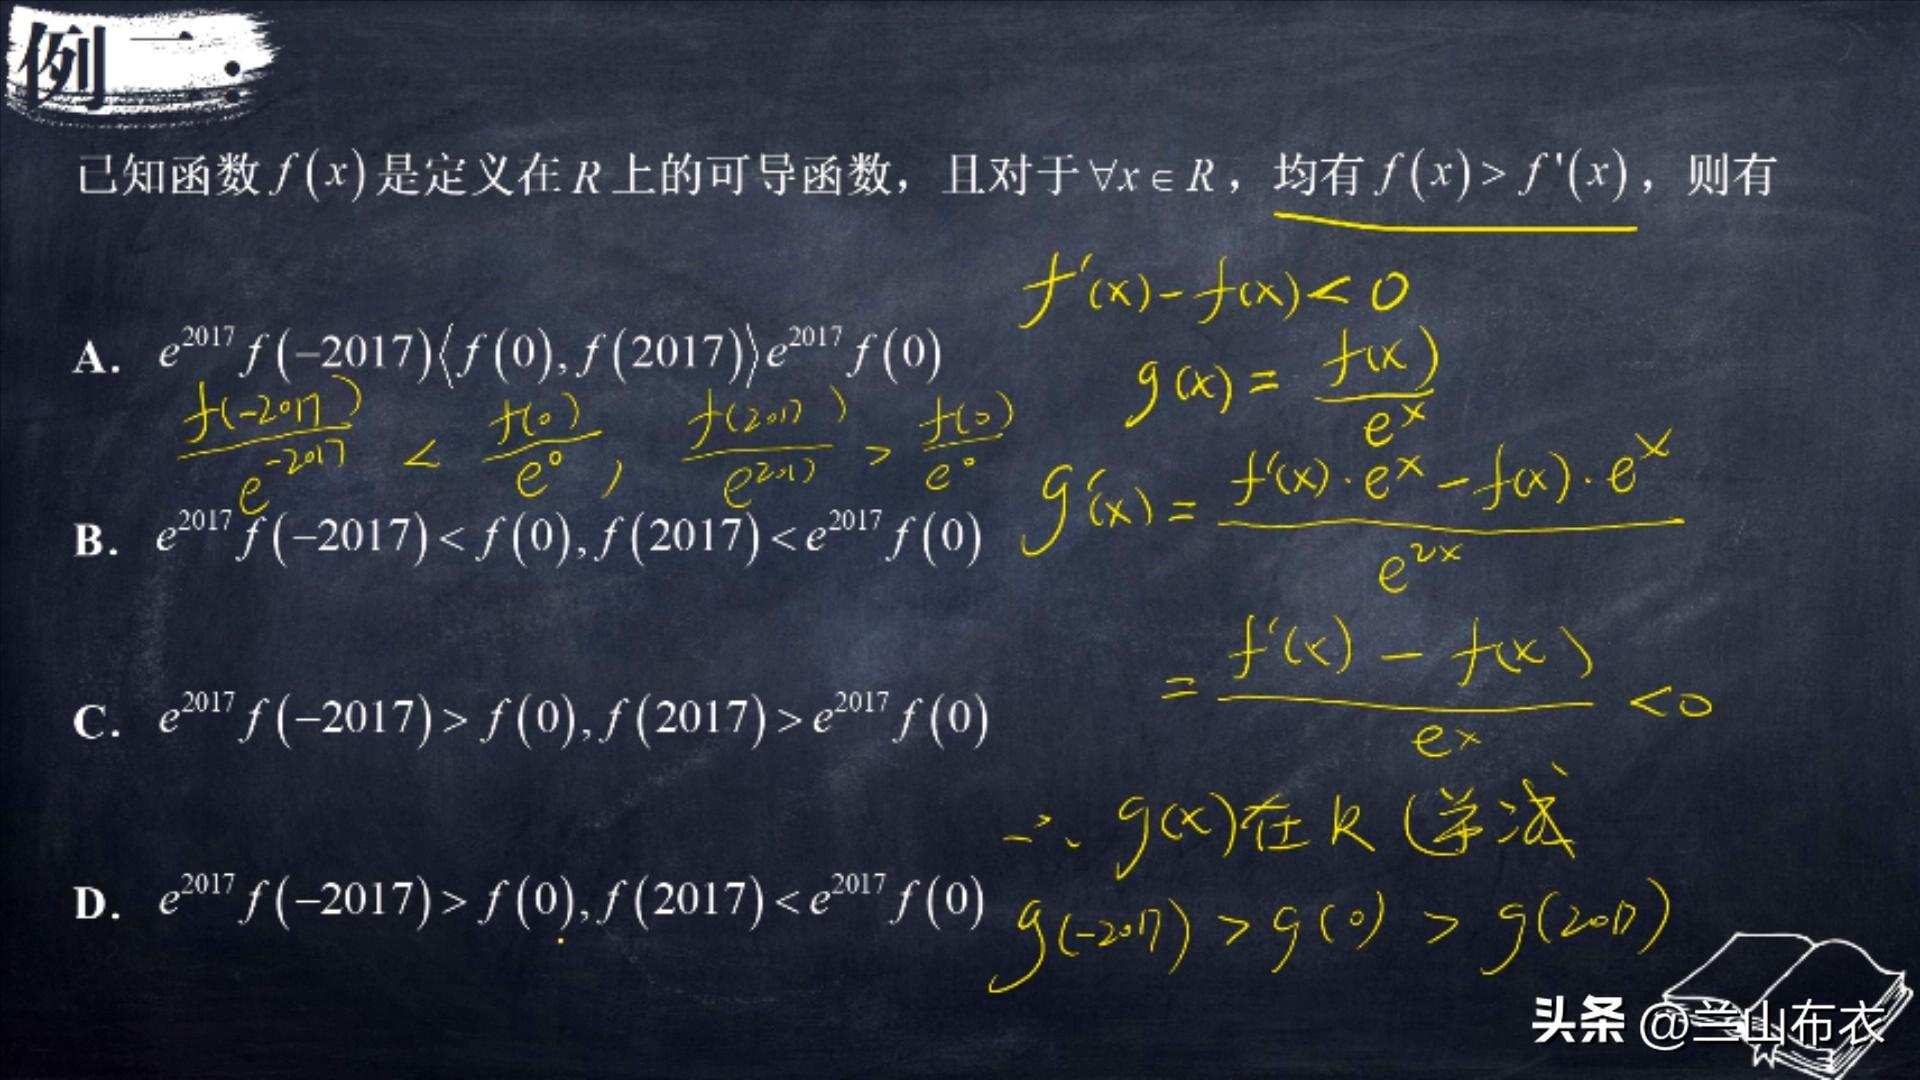 例二:
已知函数f(x)是定义在R上的可导函数，且对于∀x∈R，均有f(x)>f'(x)，则有
f'(x)-f(x)<0
A. e^2017 f(-2017)⟨f(0),f(2017)⟩e^2017 f(0)
g(x)=f(x)/e^x
f(-2017)/e^-2017 < f(0)/e^0, f(2017)/e^2017 > f(0)/e^0
g'(x)=(f'(x)·e^x-f(x)·e^x)/e^2x
B. e^2017 f(-2017)<f(0),f(2017)<e^2017 f(0)
=(f'(x)-f(x))/e^x <0
C. e^2017 f(-2017)>f(0),f(2017)>e^2017 f(0)
∴ g(x)在R上单减
D. e^2017 f(-2017)>f(0),f(2017)<e^2017 f(0)
g(-2017)>g(0)>g(2017)
头条 @兰山布衣